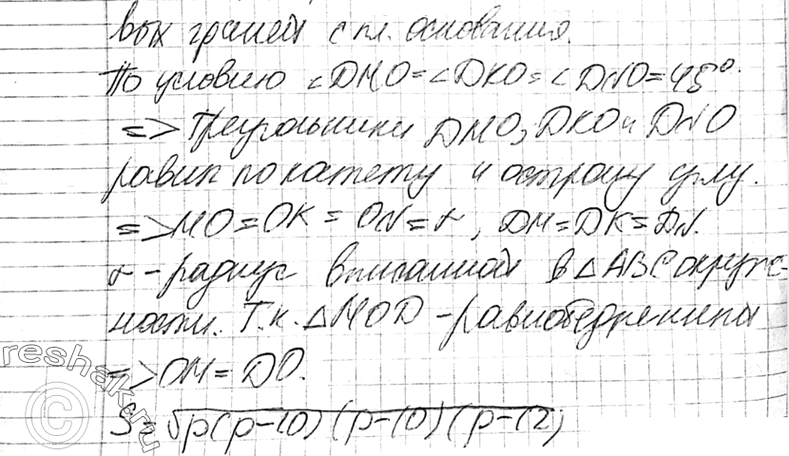 вых граней с пл. основания.
По условию ∠DMO=∠DKO=∠DNO=45°.
=> Треугольники DMO, DKO и DNO
равны по катету и острому углу.
=> MO=OK=ON=r, DM=DK=DN.
r - радиус вписанной в △ABC окруж-
ности. Т.к. △MOD - равнобедренный
=> OM=DO.
S=√p(p-10)(p-10)(p-12)
reshak.ru